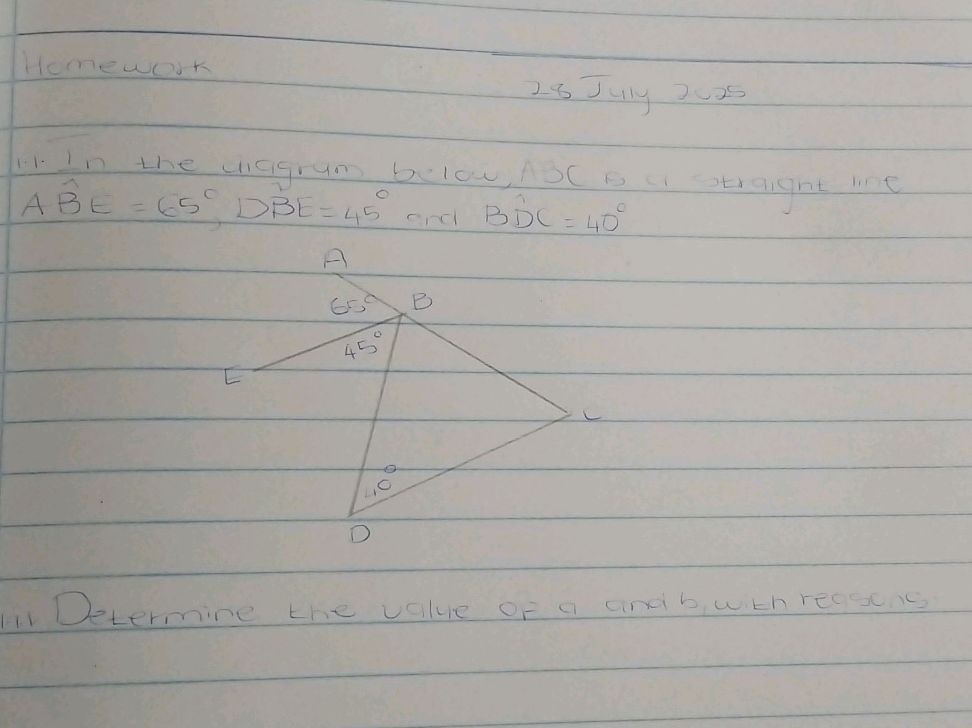 Homework
28 July 2025
1.1. In the diagram below, ABC is a straight line
AB̂E = 65°, DB̂E = 45° and BD̂C = 40°
A
65° B
45°
E
C
40°
D
1.1.1 Determine the value of a and b, with reasons.